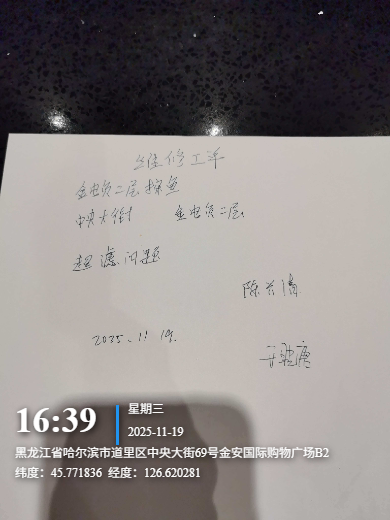 维修工单
金安负二层探鱼
中央大街 金安负二层
超滤问题
陈兴清
2025.11.19.
16:39
星期三
2025-11-19
黑龙江省哈尔滨市道里区中央大街69号金安国际购物广场B2
纬度：45.771836 经度：126.620281